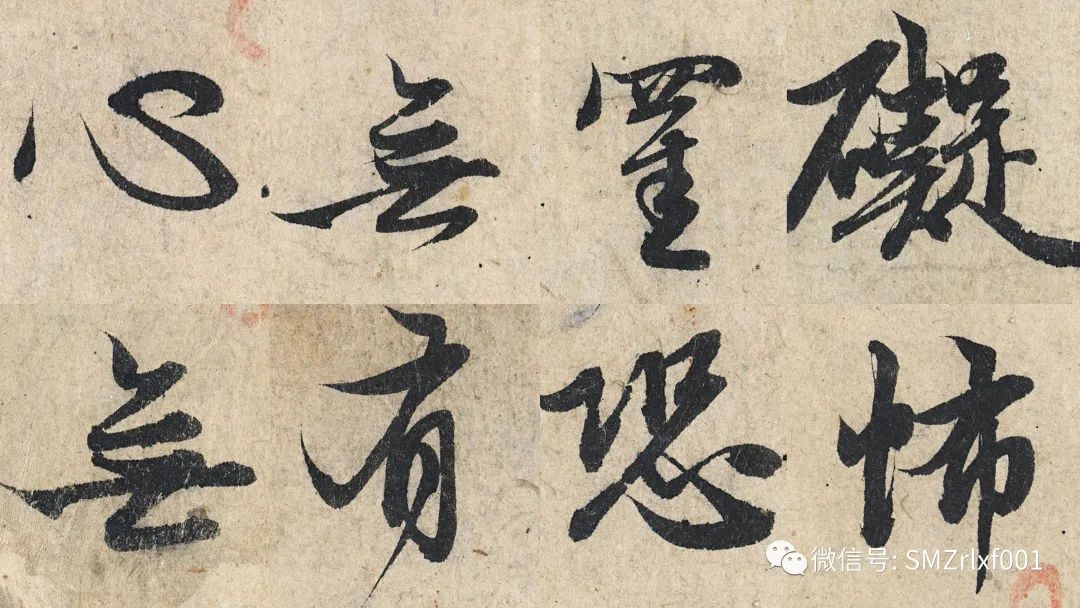 心無罣礙
無有恐怖
微信号: SMZrlxf001